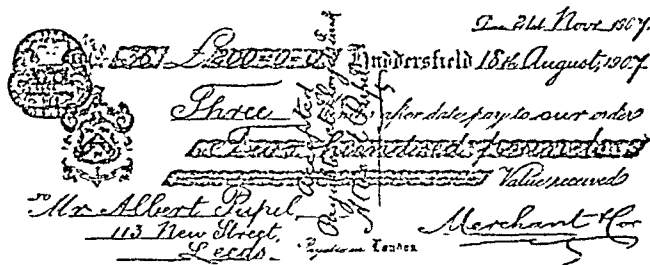 Due 21st Novr 1907.
£200=0=0 Huddersfield 18th August, 1907.
Three months after date pay to our order
Two hundred pounds
Value received
To Mr Albert Pupil,
113 New Street,
Leeds.
Merchant & Co
Payable in London
Accepted
Payable at Lloyds Bank
Albert Pupil